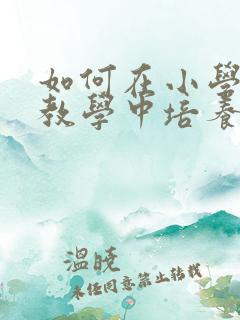 如何在小學
教學中培養
溫曉
未经同意禁止转载